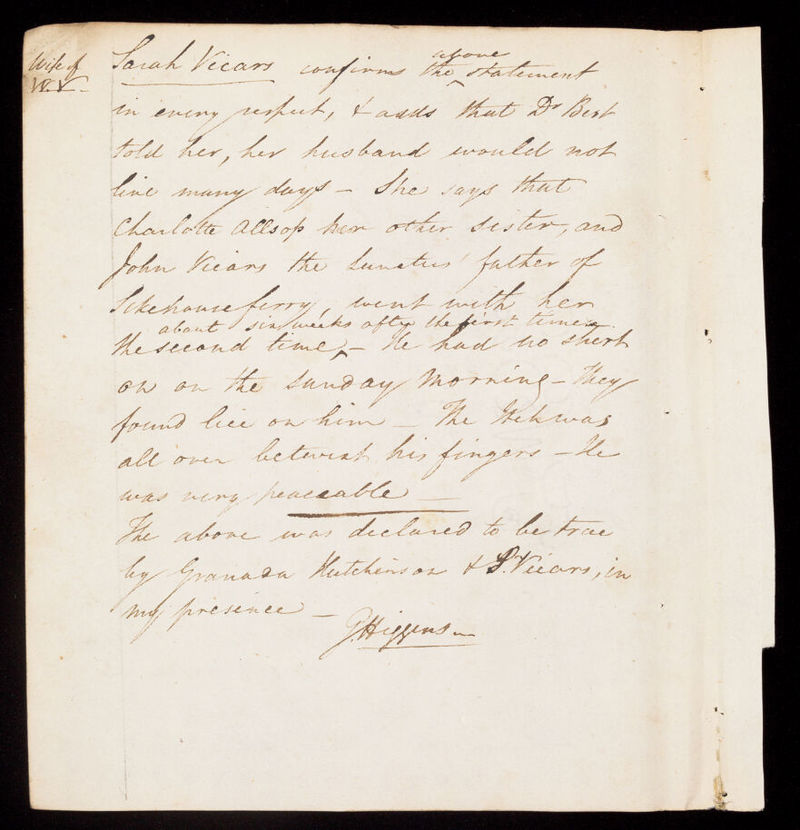 Wife of
W.V.
Sarah Vicars confirms the above statement
in every respect, & adds that Dr Best
told her, her husband would not
live many days – She says that
Charlotte Allsop her other sister, and
John Vicars the Lunatics' father of
Sikehouseferry, went with her
about six weeks after the first time.
the second time, – He had no shirt
on on the Sunday Morning – They
found lice on him – The Itch was
all over betwixt his fingers – He
was very peaceable –
The above was declared to be true
by Granada Hutchinson & S. Vicars, in
my presence –
G. Higgins